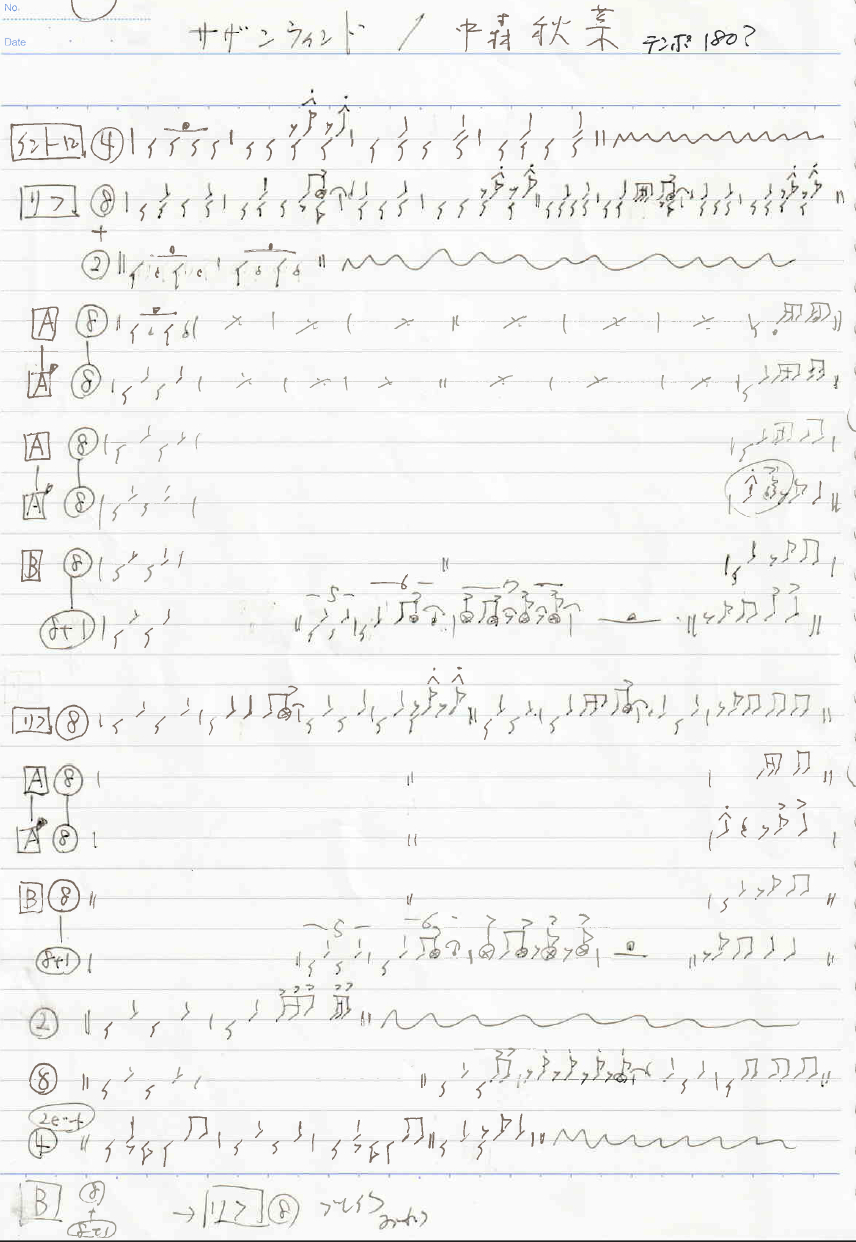 No.
サザンウィンド / 中森 秋菜 テンポ 180?
Date
イントロ ④
リフ ⑧
+
②
A ⑧
A' ⑧
A ⑧
A' ⑧
B ⑧
8+1 5 6 7
リフ ⑧
A ⑧
A' ⑧
B ⑧
8+1 5 6
②
⑧
2ビート
④
B ⑧ → リフ ⑧
+
8+1